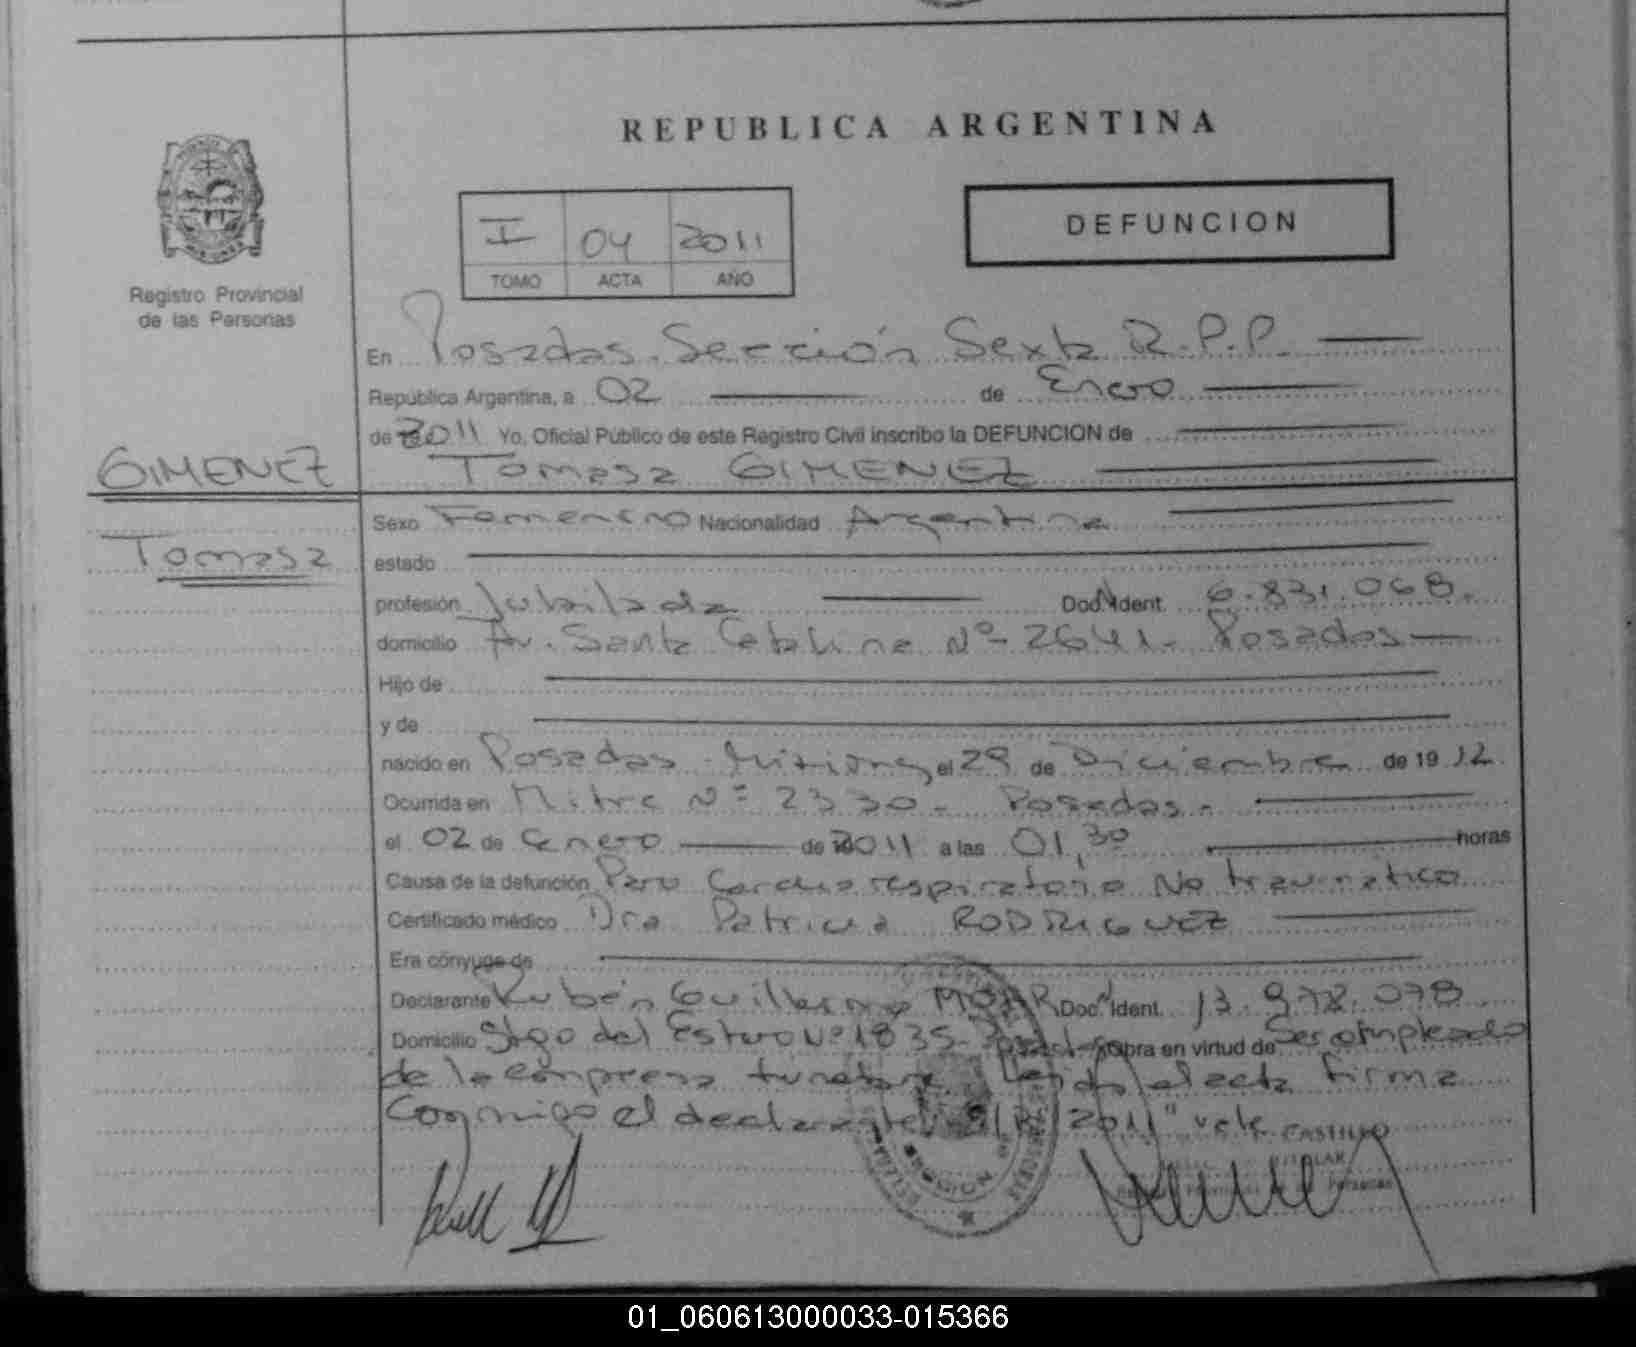 REPUBLICA ARGENTINA
Registro Provincial
de las Personas
I 04 2011
TOMO ACTA AÑO
DEFUNCION
En Posadas. Sección Sexta R.P.P.
República Argentina, a 02 de Enero
de 2011 Yo, Oficial Público de este Registro Civil inscribo la DEFUNCION de
GIMENEZ
Tomasa GIMENEZ
Tomasa
Sexo Femenino Nacionalidad Argentina
estado
profesión Jubilada Doc. Ident. 6.831.068.
domicilio Av. Santa Catalina Nº 2641- Posadas
Hijo de
y de
nacido en Posadas - Misiones, el 29 de Diciembre de 1912
Ocurrida en Mitre Nº 2330- Posadas-
el 02 de Enero de 2011 a las 01,30 horas
Causa de la defunción Paro Cardiorespiratorio No traumatico
Certificado médico Dra Patricia RODRIGUEZ
Era cónyuge de
Declarante Rubén Guillermo Doc. Ident. 13.978.078
Domicilio Stgo del Estero Nº 1835- obra en virtud de Ser empleado
de la empresa funebre Leida el acta firma
Conmigo el declarante 2011" vale
CASTILLO
TITULAR
Personas
01_060613000033-015366